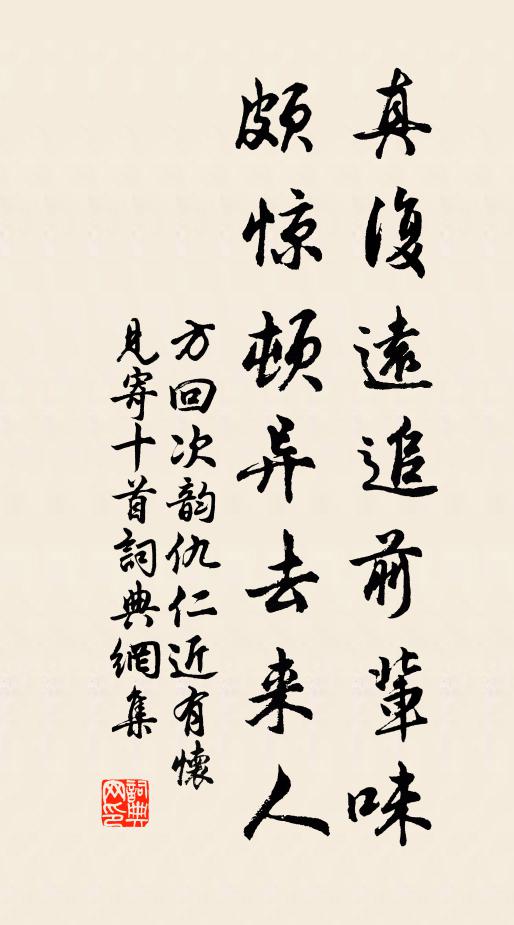 真復遠追前輩味
頗惊頓异去来人
方回次韵仇仁近有懷
見寄十首詞典網集
詞典
网印